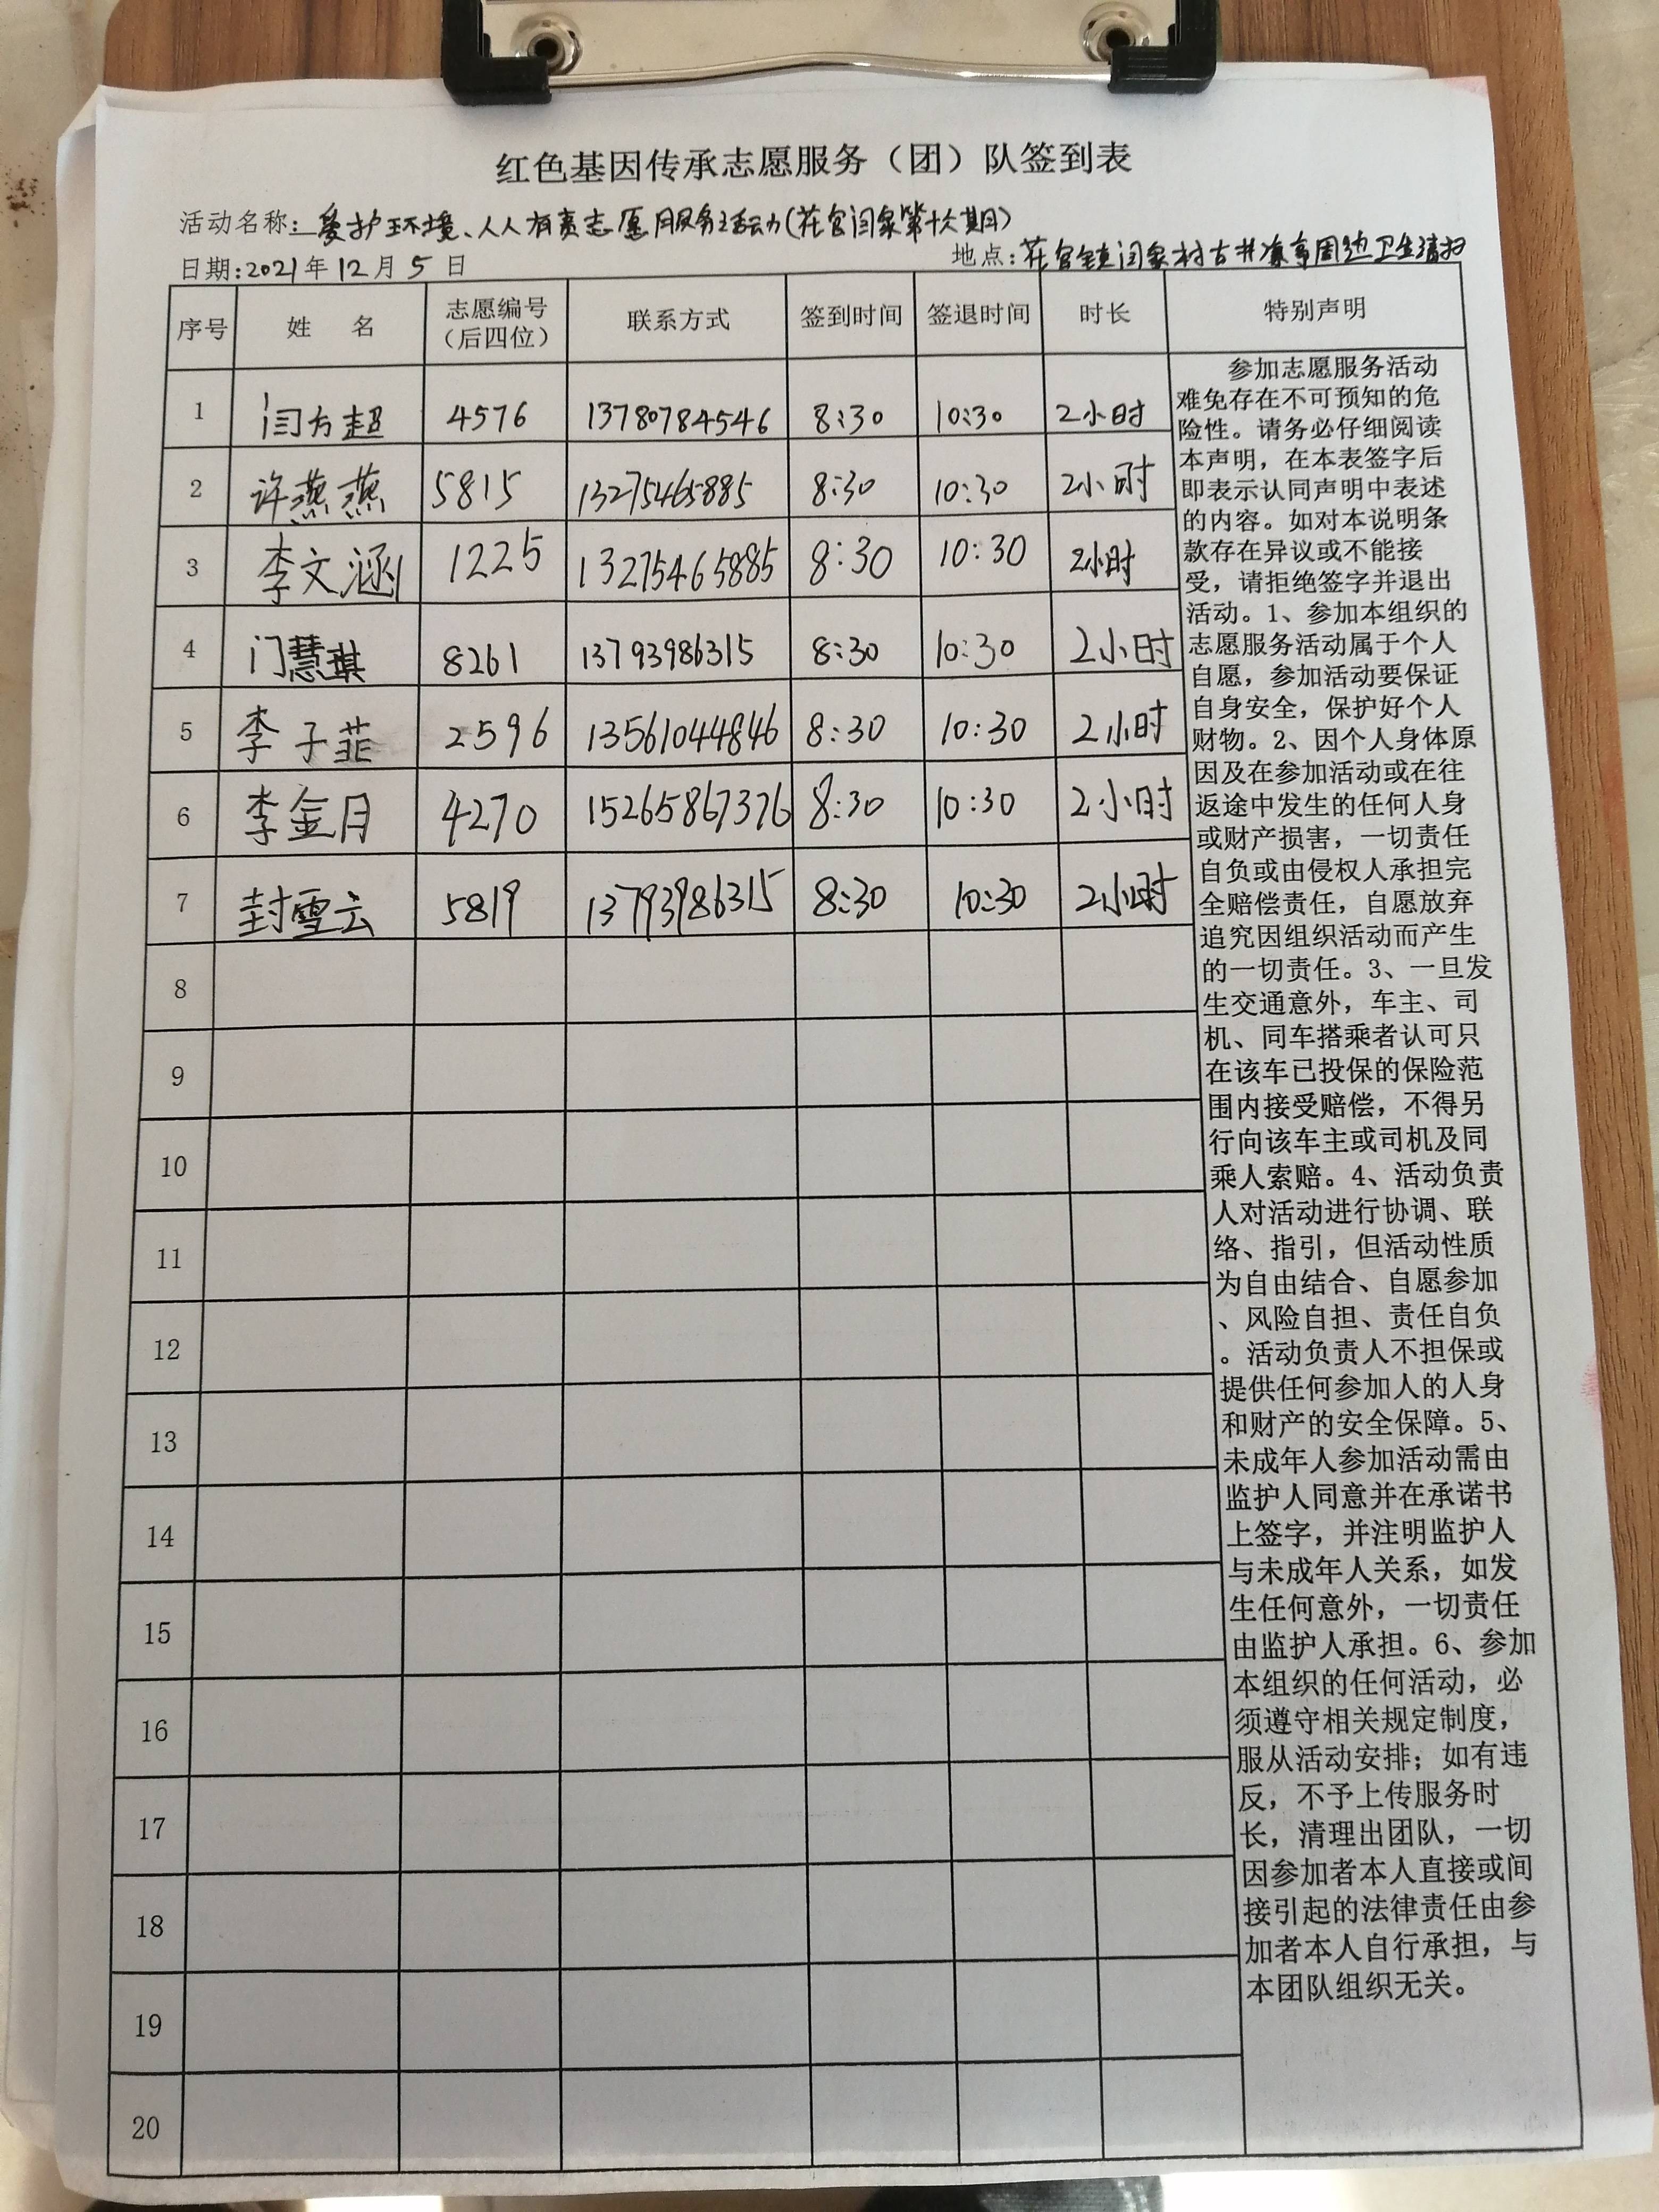 红色基因传承志愿服务（团）队签到表
活动名称：爱护环境、人人有责志愿服务活动(花官闫家第十六期)
日期：2021年12月5日
地点：花官镇闫家村古井凉亭周边卫生清扫
序号 姓 名 志愿编号（后四位） 联系方式 签到时间 签退时间 时长 特别声明
1 闫方超 4576 13780784546 8:30 10:30 2小时
2 许燕燕 5815 13275465885 8:30 10:30 2小时
3 李文涵 1225 13275465885 8:30 10:30 2小时
4 门慧琪 8261 13793986315 8:30 10:30 2小时
5 李子菲 2596 13561044846 8:30 10:30 2小时
6 李金月 4270 15265867376 8:30 10:30 2小时
7 封雪云 5819 13793986315 8:30 10:30 2小时
8
9
10
11
12
13
14
15
16
17
18
19
20
参加志愿服务活动
难免存在不可预知的危
险性。请务必仔细阅读
本声明，在本表签字后
即表示认同声明中表述
的内容。如对本说明条
款存在异议或不能接
受，请拒绝签字并退出
活动。1、参加本组织的
志愿服务活动属于个人
自愿，参加活动要保证
自身安全，保护好个人
财物。2、因个人身体原
因及在参加活动或在往
返途中发生的任何人身
或财产损害，一切责任
自负或由侵权人承担完
全赔偿责任，自愿放弃
追究因组织活动而产生
的一切责任。3、一旦发
生交通意外，车主、司
机、同车搭乘者认可只
在该车已投保的保险范
围内接受赔偿，不得另
行向该车主或司机及同
乘人索赔。4、活动负责
人对活动进行协调、联
络、指引，但活动性质
为自由结合、自愿参加
、风险自担、责任自负
。活动负责人不担保或
提供任何参加人的人身
和财产的安全保障。5、
未成年人参加活动需由
监护人同意并在承诺书
上签字，并注明监护人
与未成年人关系，如发
生任何意外，一切责任
由监护人承担。6、参加
本组织的任何活动，必
须遵守相关规定制度，
服从活动安排；如有违
反，不予上传服务时
长，清理出团队，一切
因参加者本人直接或间
接引起的法律责任由参
加者本人自行承担，与
本团队组织无关。